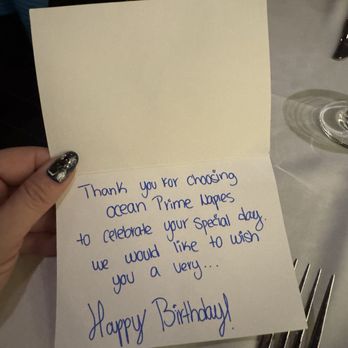 Thank you for choosing
ocean Prime Naples
to celebrate your special day.
we would like to wish
you a very...
Happy Birthday!